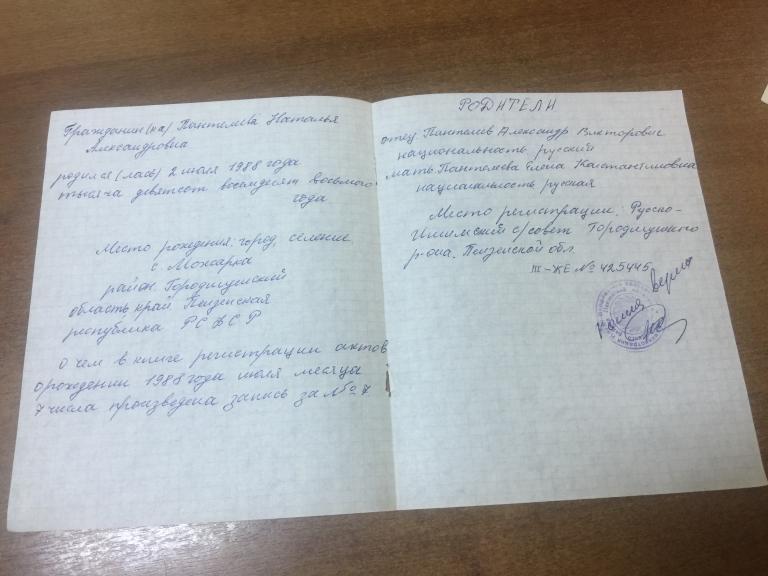 Гражданин(ка) Пантелева Наталья
Александровна
родился (лась) 2 июля 1988 года
тысяча девятсот восемдесят восьмого
года
Место рождения: город, селение
с. Можарка
район Городищенский
область край Пензенская
республика РСФСР
О чем в книге регистрации актов
о рождении 1988 года июля месяца
7 числа произведена запись за № 7
РОДИТЕЛИ
отец Пантелев Александр Викторович
национальность русский
мать Пантелева Елена Константиновна
национальность русская
Место регистрации: Русско-
Ишимский с/совет Городищенского
р-она, Пензенской обл.
III-ЖЕ № 425445
Копия верна